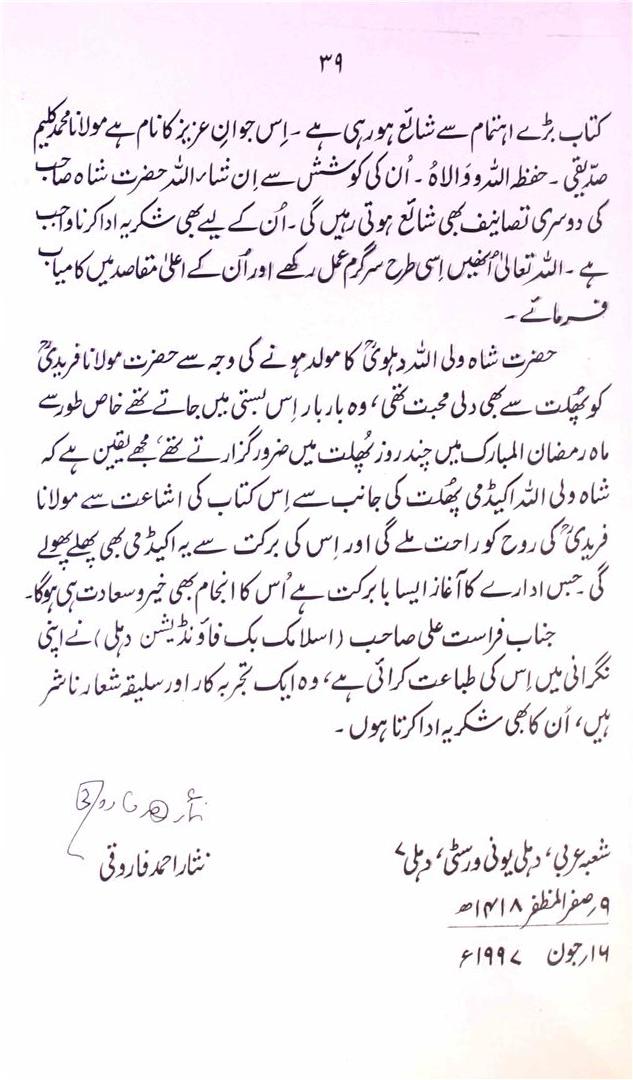 ۳۹
کتاب بڑے اہتمام سے شائع ہو رہی ہے ۔ اِس جوانِ عزیز کا نام ہے مولانا محمد کلیم
صدّیقی ۔ حفظہ اللہ و والاہُ ۔ اُن کی کوشش سے اِن شاء اللہ حضرت شاہ صاحب
کی دوسری تصانیف بھی شائع ہوتی رہیں گی ۔ اُن کے لیے بھی شکریہ ادا کرنا واجب
ہے ۔ اللہ تعالیٰ اُنھیں اِسی طرح سرگرمِ عمل رکھے اور اُن کے اعلیٰ مقاصد میں کامیاب
فرمائے ۔
حضرت شاہ ولی اللہ دہلویؒ کا مولد ہونے کی وجہ سے حضرت مولانا فریدیؒ
کو پھُلت سے بھی دلی محبت تھی، وہ بار بار اِس بستی میں جاتے تھے خاص طور سے
ماہ رمضان المبارک میں چند روز پھُلت میں ضرور گزارتے تھے، مجھے یقین ہے کہ
شاہ ولی اللہ اکیڈمی پھُلت کی جانب سے اِس کتاب کی اشاعت سے مولانا
فریدیؒ کی روح کو راحت ملے گی اور اِس کی برکت سے یہ اکیڈمی بھی پھلے پھولے
گی ۔ جس ادارے کا آغاز ایسا بابرکت ہے اُس کا انجام بھی خیر و سعادت ہی ہوگا۔
جناب فراست علی صاحب (اسلامک بک فاؤنڈیشن دہلی) نے اپنی
نگرانی میں اِس کی طباعت کرائی ہے، وہ ایک تجربہ کار اور سلیقہ شعار ناشر
ہیں، اُن کا بھی شکریہ ادا کرتا ہوں ۔
نثار احمد فاروقی
شعبہ عربی، دہلی یونی ورسٹی، دہلی ۷
نثار احمد فاروقی
۹ر صفر المظفر ۱۴۱۸ھ
۱۶ر جون ۱۹۹۷ء